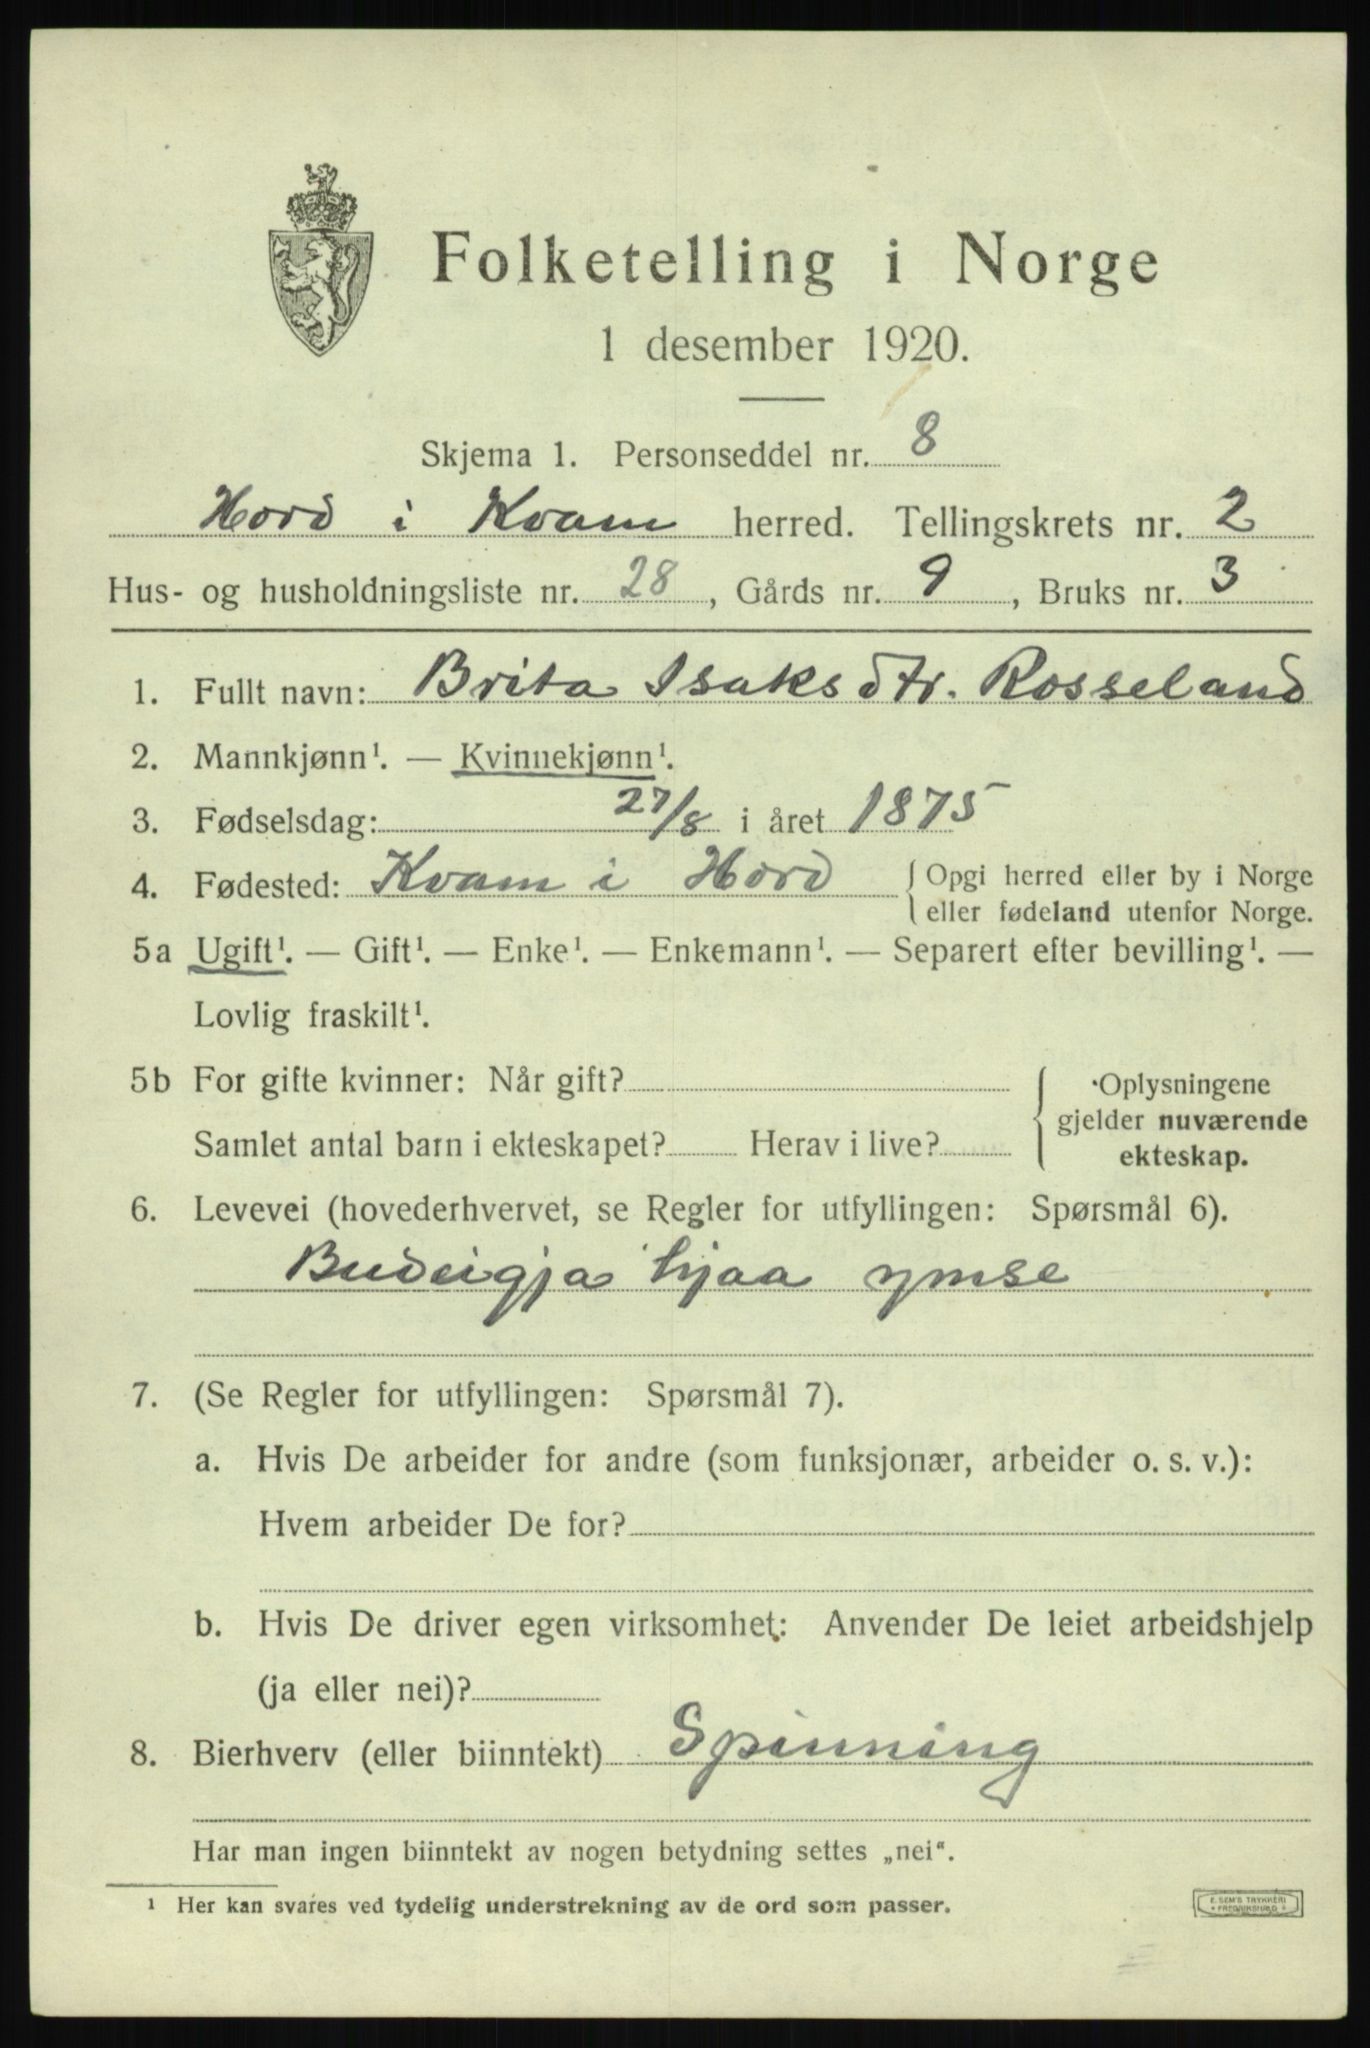 Folketelling i Norge
1 desember 1920.
Skjema 1. Personseddel nr. 8
Hord i Kvam herred. Tellingskrets nr. 2
Hus- og husholdningsliste nr. 28, Gårds nr. 9, Bruks nr. 3
1. Fullt navn: Brita Isaksdtr. Rosseland
2. Mannkjønn¹. — Kvinnekjønn¹.
3. Fødselsdag: 27/8 i året 1875
4. Fødested: Kvam i Hord { Opgi herred eller by i Norge
eller fødeland utenfor Norge.
5a Ugift¹. — Gift¹. — Enke¹. — Enkemann¹. — Separert efter bevilling¹. —
Lovlig fraskilt¹.
5b For gifte kvinner: Når gift?
Samlet antal barn i ekteskapet? Herav i live?
{ Oplysningene
gjelder nuværende
ekteskap.
6. Levevei (hovederhvervet, se Regler for utfyllingen: Spørsmål 6).
Budeigja hjaa ymse
7. (Se Regler for utfyllingen: Spørsmål 7).
a. Hvis De arbeider for andre (som funksjonær, arbeider o. s. v.):
Hvem arbeider De for?
b. Hvis De driver egen virksomhet: Anvender De leiet arbeidshjelp
(ja eller nei)?
8. Bierhverv (eller biinntekt) Spinning
Har man ingen biinntekt av nogen betydning settes „nei“.
¹ Her kan svares ved tydelig understrekning av de ord som passer.
E. SEM'S TRYKKERI
FREDRIKSHALD